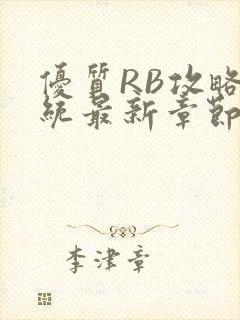 優質RB攻略
統最新章節
李津章